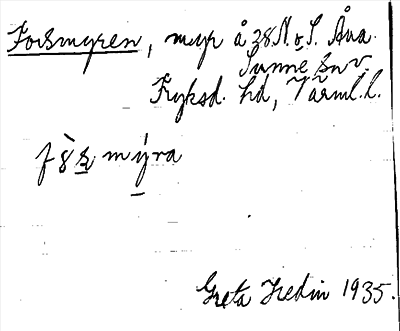 Forsmyren, myr å 38 N. & S. Åna.
Sunne sn v.
Fryksd. hd, Värml. l.
fò̀8s̲ mýra
Greta Hedin 1935.